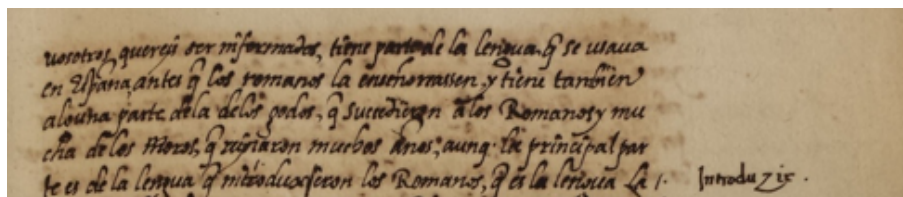 vosotros, quereis ser informados, tiene parte de la lengua, q̃ se usava
en España, antes q̃ los romanos la enseñorassen, y tiene tanbien
alguna parte dela delos godos, q̃ sucedieron a los Romanos y mu
cha de los Moros, q̃ reynaron muchos años, aunq̃ la principal par
te es de la lengua q̃ introduxeron los Romanos, q̃ es la lengua La /. Introduzir.